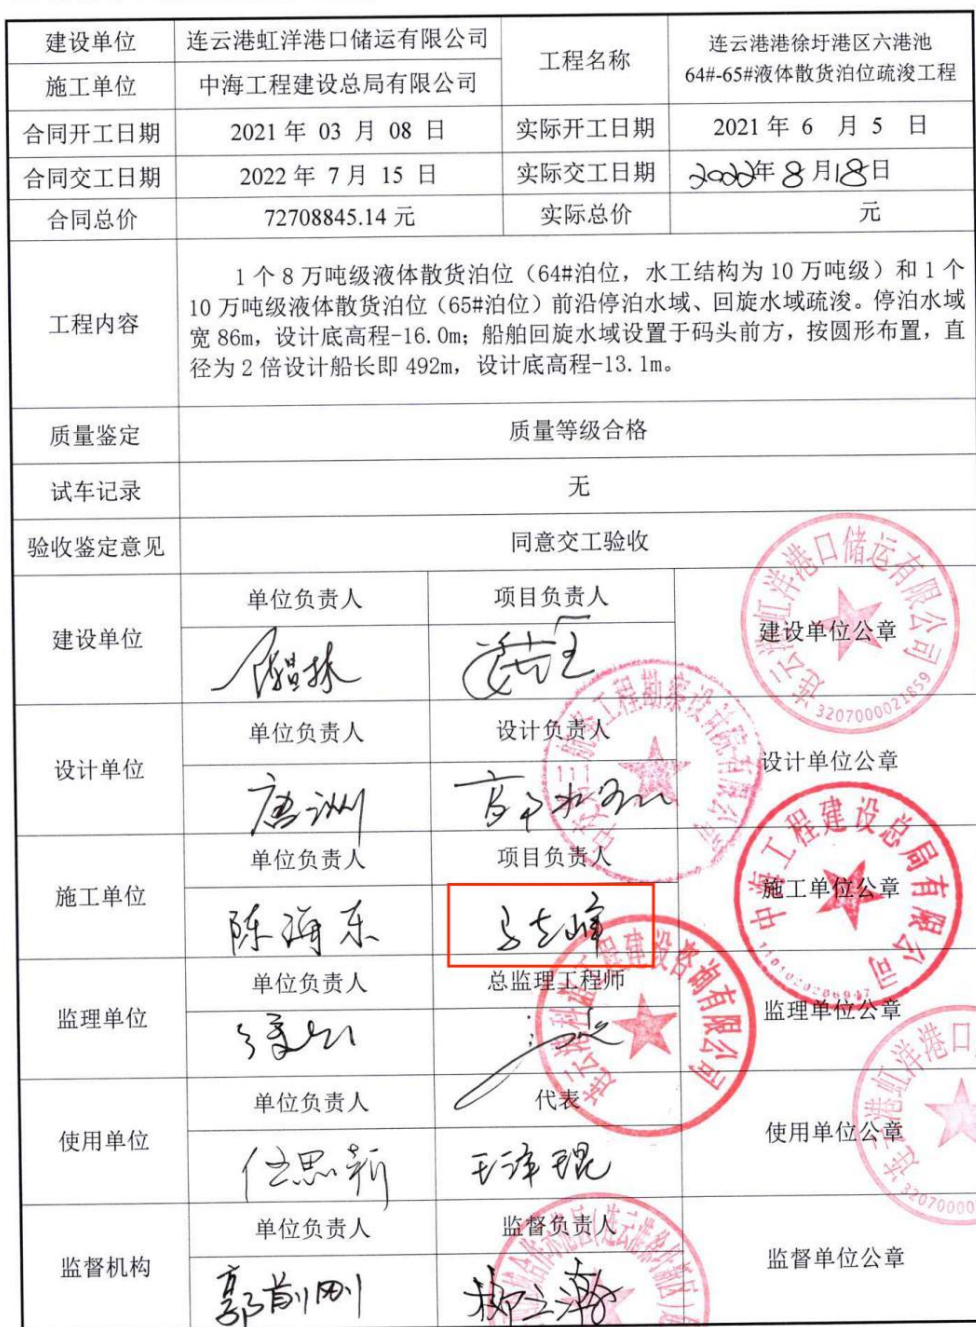 建设单位
连云港虹洋港口储运有限公司
工程名称
连云港港徐圩港区六港池
64#-65#液体散货泊位疏浚工程
施工单位
中海工程建设总局有限公司
合同开工日期
2021 年 03 月 08 日
实际开工日期
2021 年 6 月 5 日
合同交工日期
2022 年 7 月 15 日
实际交工日期
2022年8月18日
合同总价
72708845.14 元
实际总价
元
工程内容
1 个 8 万吨级液体散货泊位（64#泊位，水工结构为 10 万吨级）和 1 个
10 万吨级液体散货泊位（65#泊位）前沿停泊水域、回旋水域疏浚。停泊水域
宽 86m，设计底高程-16.0m；船舶回旋水域设置于码头前方，按圆形布置，直
径为 2 倍设计船长即 492m，设计底高程-13.1m。
质量鉴定
质量等级合格
试车记录
无
验收鉴定意见
同意交工验收
建设单位
单位负责人
项目负责人
建设单位公章
连云港虹洋港口储运有限公司
3207000021859
设计单位
单位负责人
设计负责人
设计单位公章
唐
工程勘察设计院有限公司
施工单位
单位负责人
项目负责人
施工单位公章
陈海东
马志峰
中海工程建设总局有限公司
监理单位
单位负责人
总监理工程师
监理单位公章
工程建设咨询有限公司
使用单位
单位负责人
代表
使用单位公章
伍思新
王译琨
连云港虹洋港口
3207000
监督机构
单位负责人
监督负责人
监督单位公章
郭前刚
柳立瀚